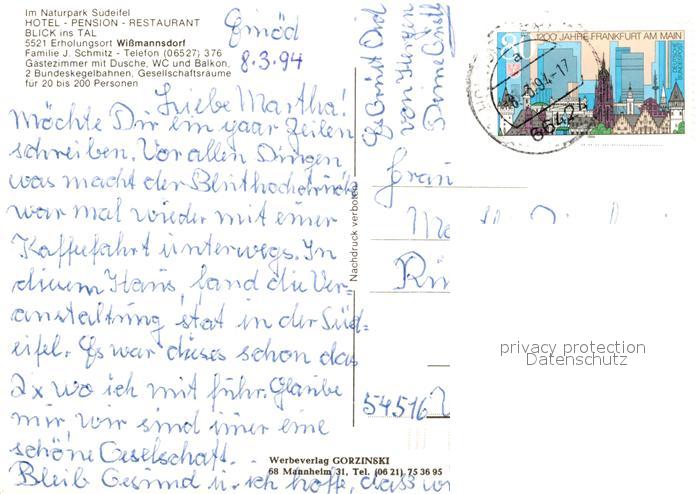 Im Naturpark Südeifel
HOTEL - PENSION - RESTAURANT
BLICK ins TAL
5521 Erholungsort Wißmannsdorf
Familie J. Schmitz - Telefon (06527) 376
Gästezimmer mit Dusche, WC und Balkon,
2 Bundeskegelbahnen, Gesellschaftsräume
für 20 bis 200 Personen
Einöd
8.3.94
Liebe Martha!
Möchte Dir ein paar Zeilen
schreiben. Vor allen Dingen
was macht der Bluthochdruck
war mal wieder mit einer
Kaffefahrt unterwegs. In
diesem Haus, fand die Ver-
anstaltung stat in der Süd-
eifel. Es war dieses schon das
2x wo ich mit führ. Glaube
mir, wir sind imer eine
schöne Geselschaft.
Bleib Gesund u. ich hoffe, dass wi
Es Grüst Dich
von Herzen
Deine
Nachdruck verboten
1200 JAHRE FRANKFURT AM MAIN
80
DEUTSCHE
BUNDESPOST
-8.-3.94-17
66424
a
Frau
54516
privacy protection
Datenschutz
Werbeverlag GORZINSKI
68 Mannheim 31, Tel. (06 21) 75 36 95